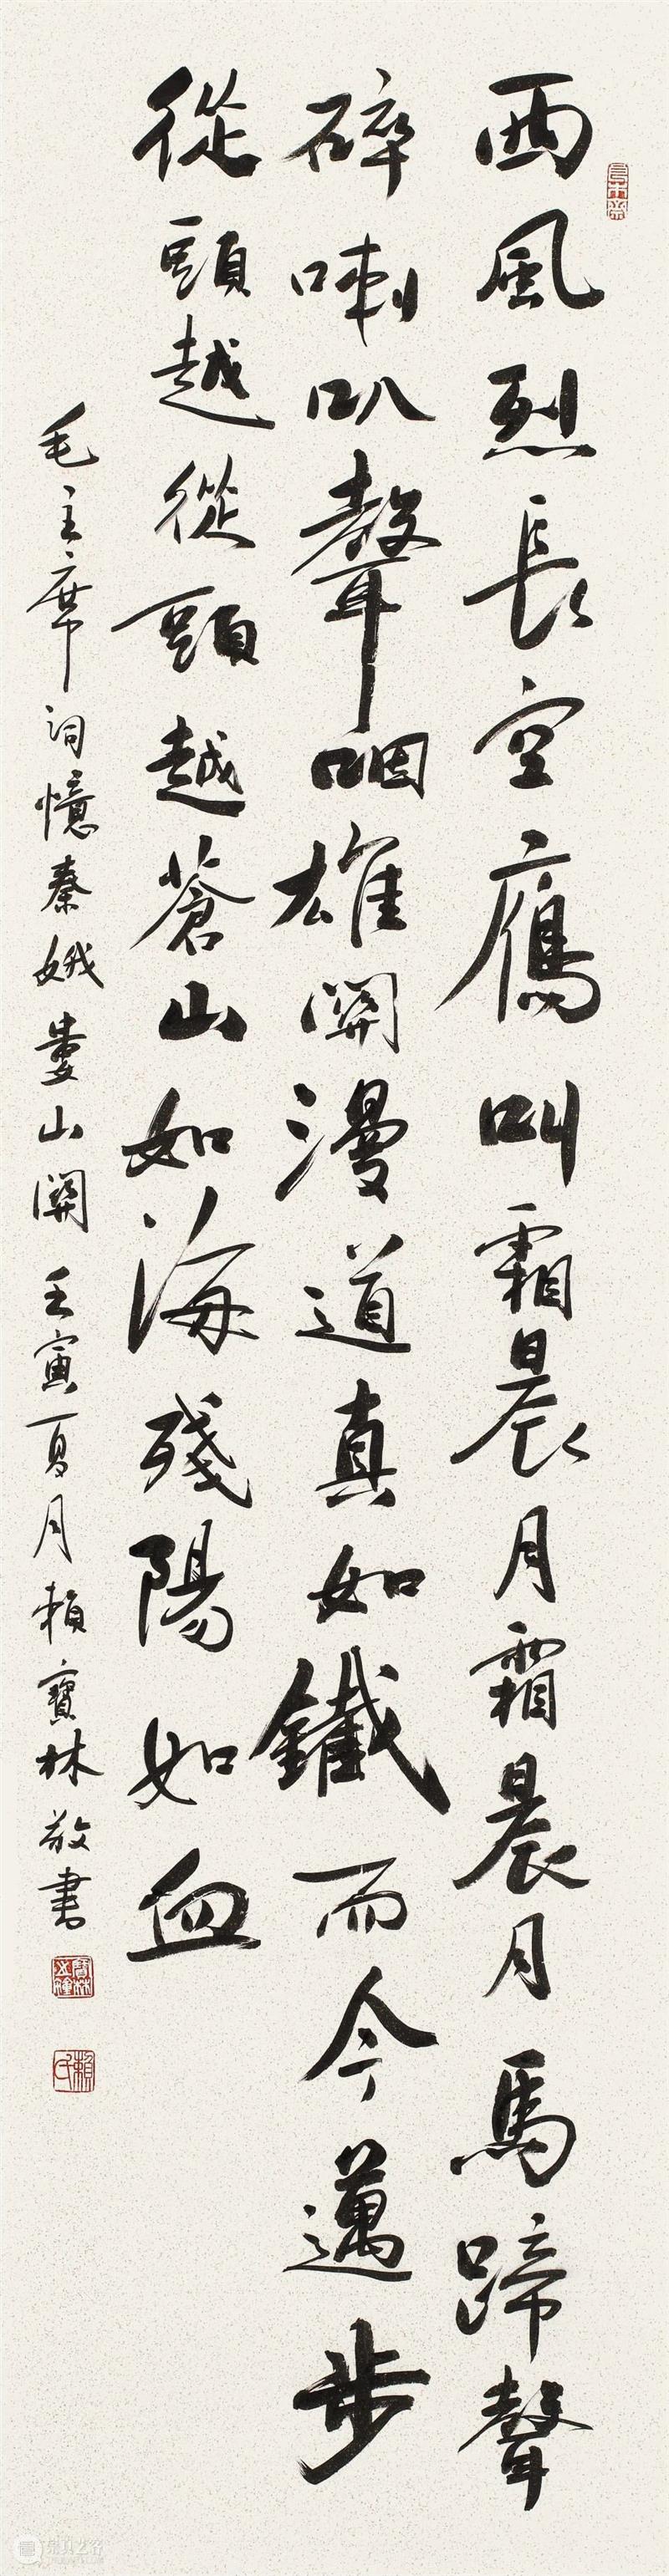 西風烈長空鴈叫霜晨月霜晨月馬蹄聲
碎喇叭聲咽雄關漫道真如鐵而今邁步
從頭越從頭越蒼山如海殘陽如血
毛主席詞憶秦娥婁山關壬寅夏月賴寶林敬書
賴氏